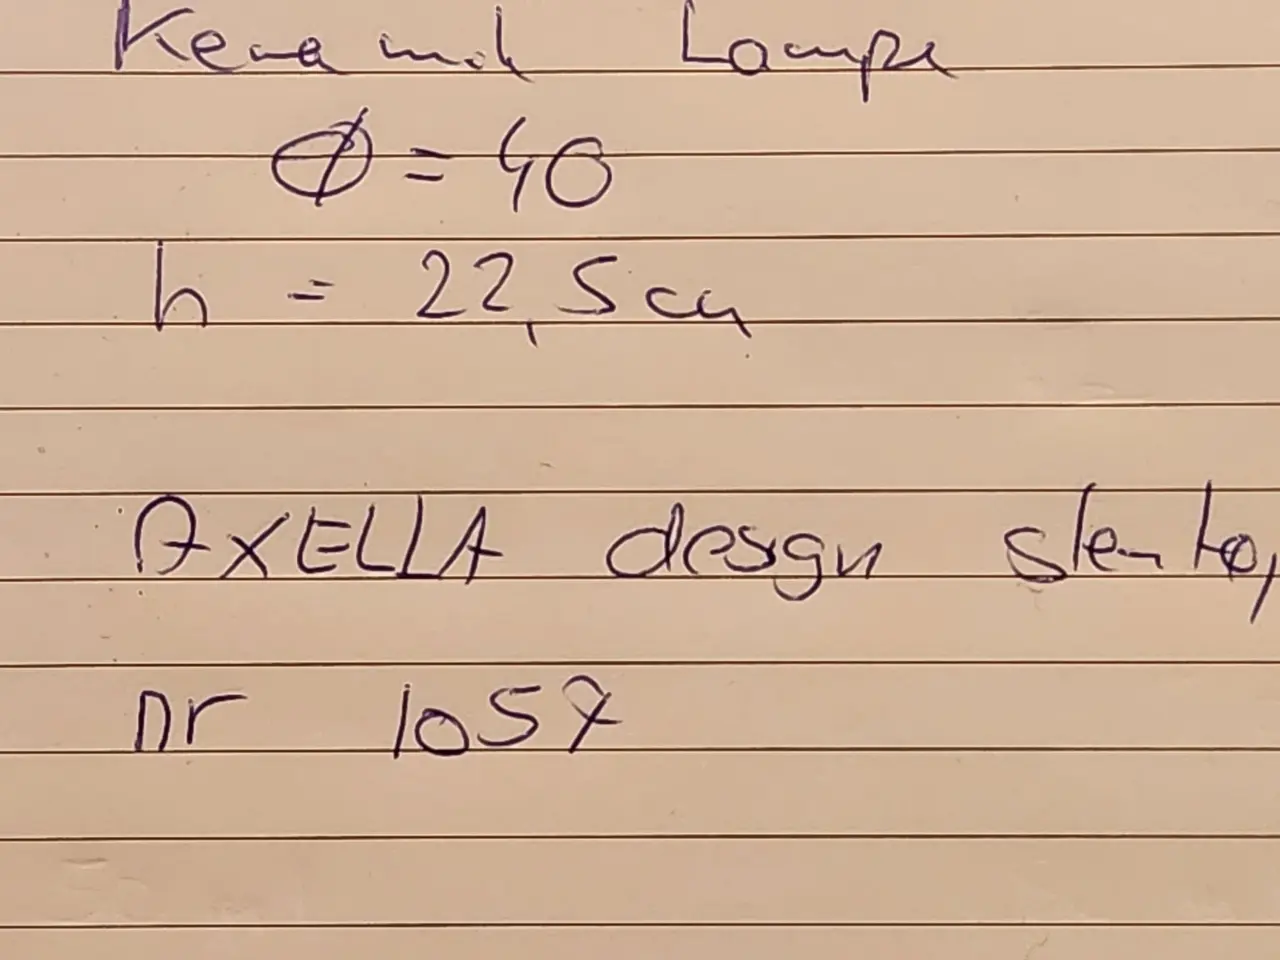 Keramik Lampe
Ø = 40
h = 22,5 cm
AXELLA design stentøj
nr 1057